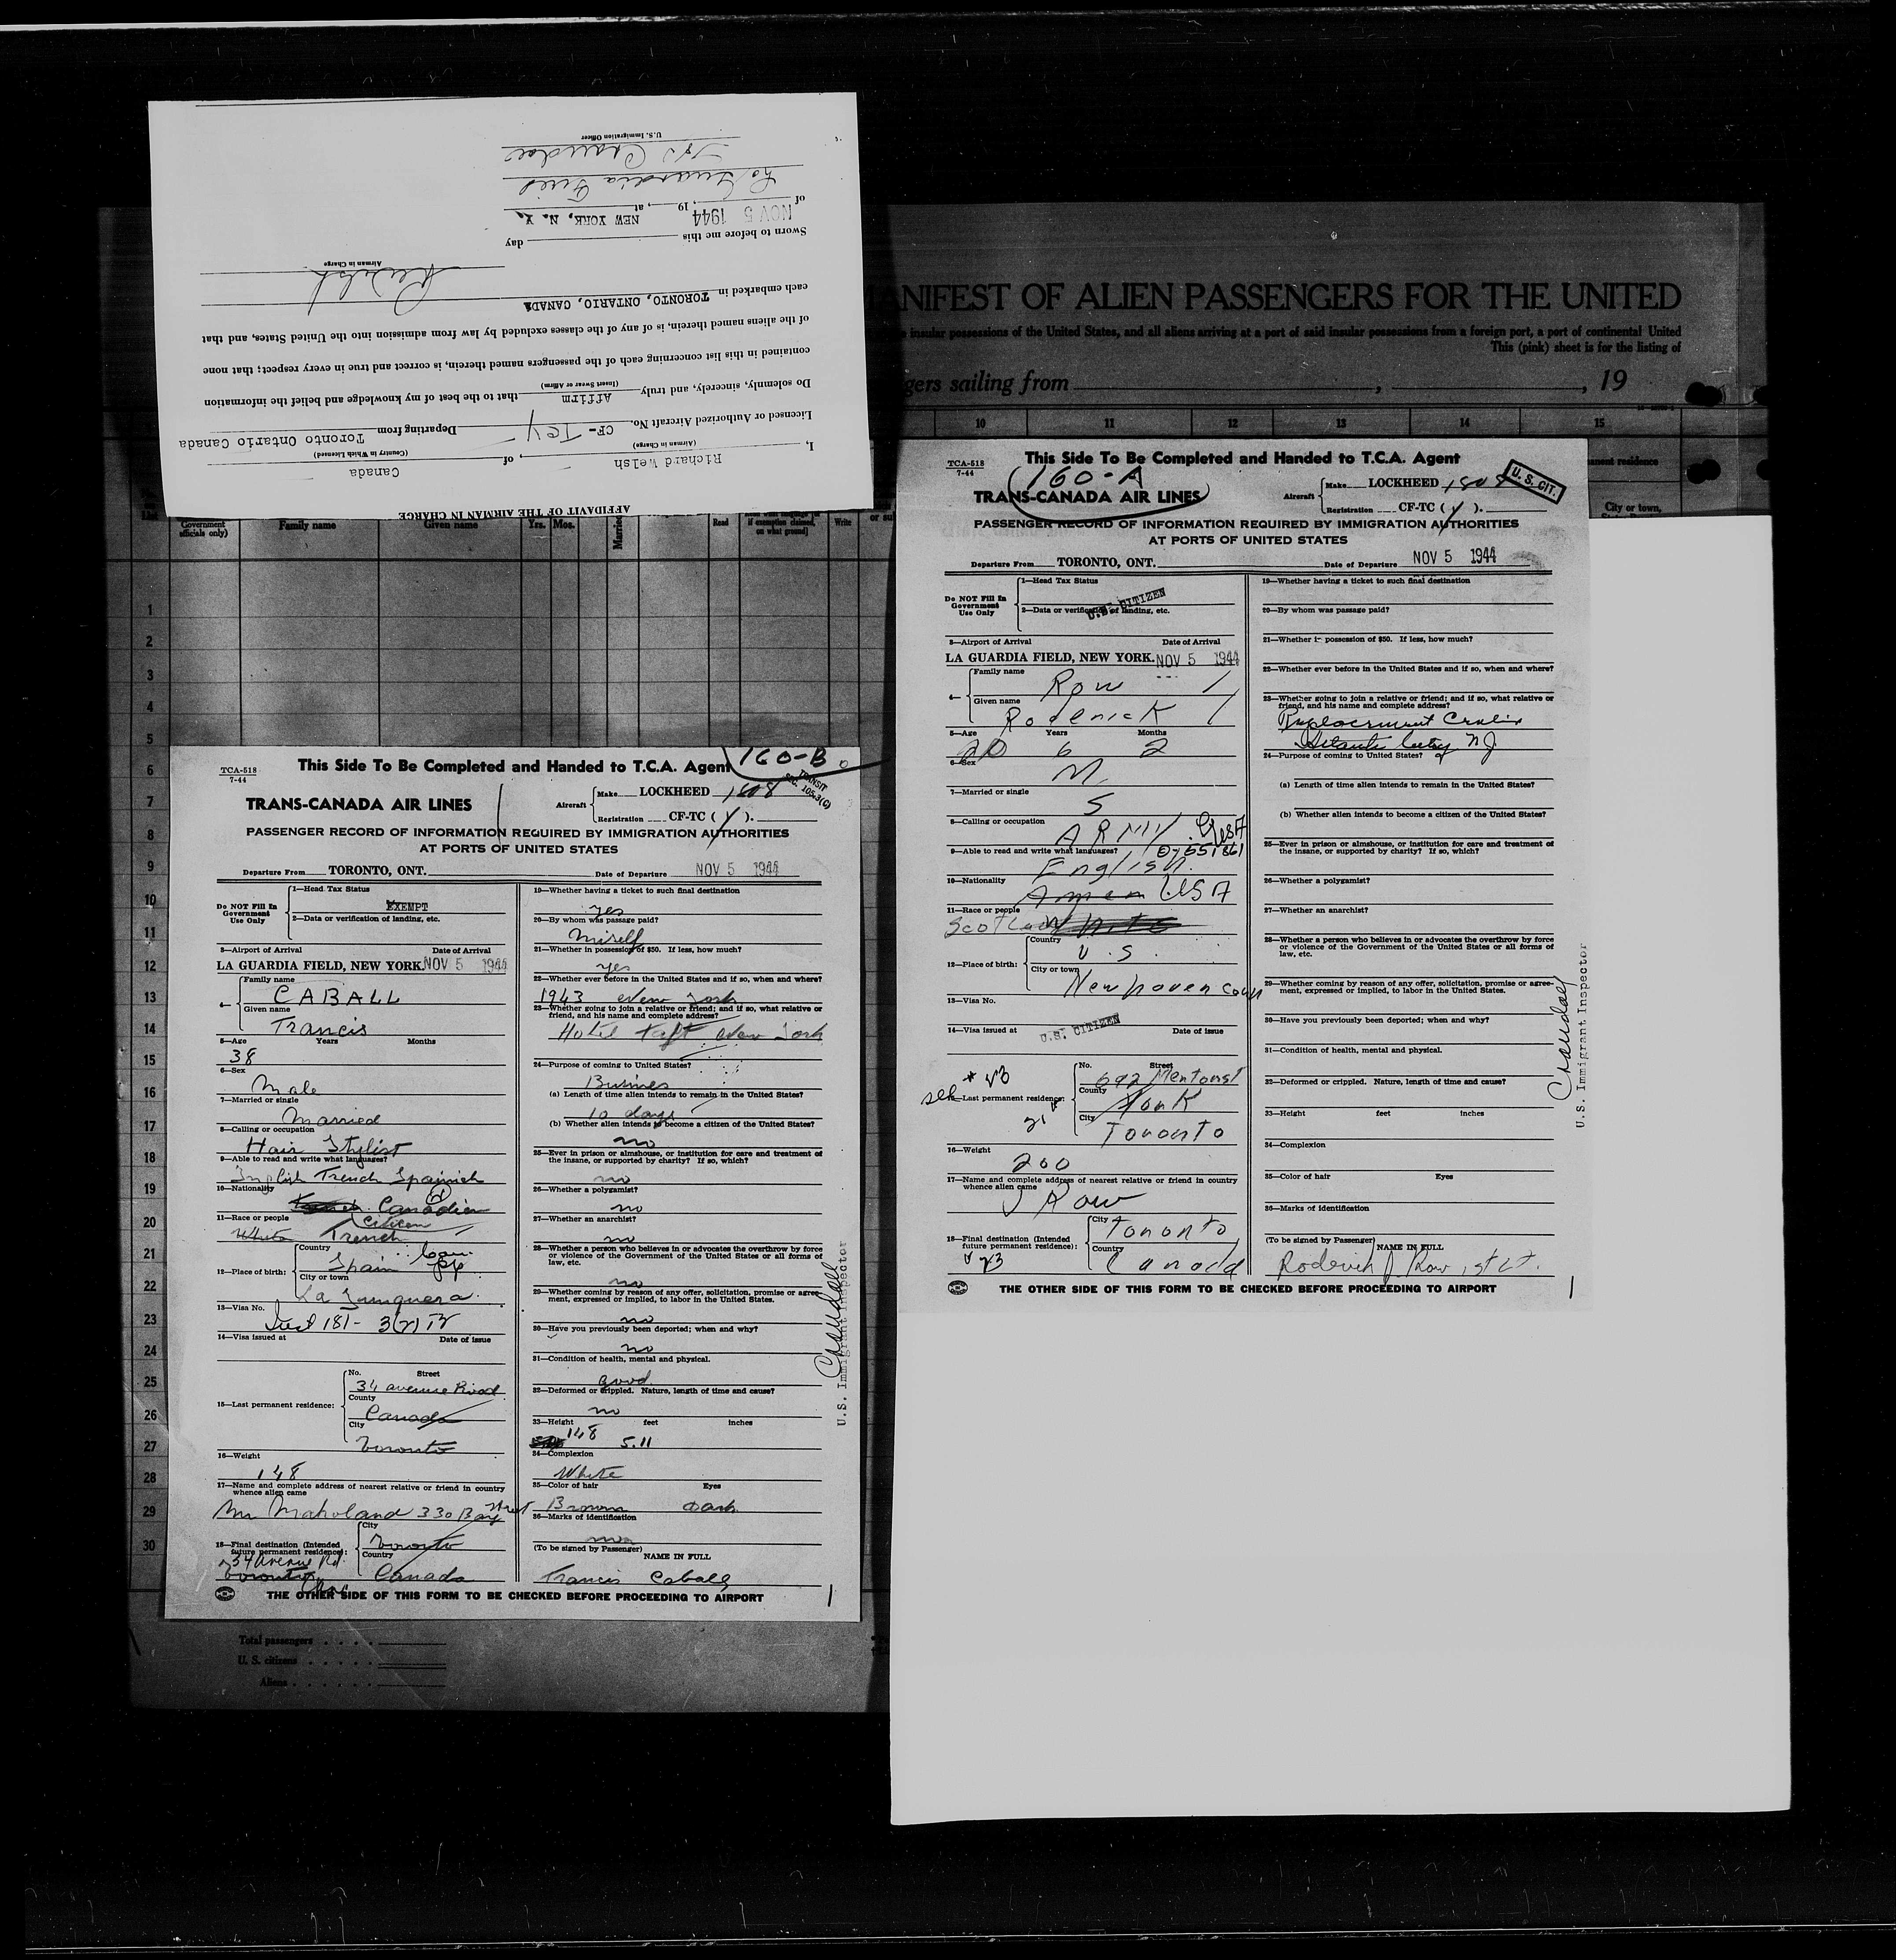 AFFIDAVIT OF THE AIRMAN IN CHARGE
I, Richard Welsh, of Canada
(Airman in Charge) (Country in Which Licensed)
Licensed or Authorized Aircraft No. CF-TCY Departing from Toronto Ontario Canada
Do solemnly, sincerely, and truly Affirm that to the best of my knowledge and belief the information
(Insert Swear or Affirm)
contained in this list concerning each of the passengers named therein, is correct and true in every respect; that none
of the aliens named therein, is of any of the classes excluded by law from admission into the United States, and that
each embarked in TORONTO, ONTARIO, CANADA
R Welsh
Airman in Charge
Sworn to before me this day
of NOV 5 1944, 19, at NEW YORK, N. Y.
La Guardia Field
U.S. Immigration Officer
MANIFEST OF ALIEN PASSENGERS FOR THE UNITED
insular possessions of the United States, and all aliens arriving at a port of said insular possessions from a foreign port, a port of continental United
This (pink) sheet is for the listing of
gers sailing from , , 19
10 11 12 13 14 15
permanent residence
City or town,
Government officials only)
Family name Given name Yrs. Mos. Married Read if exemption claimed, on what ground] Write
1
2
3
4
5
6
7
8
9
10
11
12
13
14
15
16
17
18
19
20
21
22
23
24
25
26
27
28
29
30
Total passengers
U. S. citizens
Aliens
160-B
TCA-518
7-44
This Side To Be Completed and Handed to T.C.A. Agent
TRANSIT
SEC. 105.3(G)
TRANS-CANADA AIR LINES
Aircraft Make LOCKHEED 1808
Registration CF-TC ( Y ).
PASSENGER RECORD OF INFORMATION REQUIRED BY IMMIGRATION AUTHORITIES
AT PORTS OF UNITED STATES
Departure From TORONTO, ONT. Date of Departure NOV 5 1944
Do NOT Fill In Government Use Only
1—Head Tax Status
EXEMPT
2—Data or verification of landing, etc.
3—Airport of Arrival Date of Arrival
LA GUARDIA FIELD, NEW YORK. NOV 5 1944
4— Family name
CABALL
Given name
Francis
5—Age Years Months
38
6—Sex
Male
7—Married or single
Married
8—Calling or occupation
Hair Stylist
9—Able to read and write what languages?
English French Spainish
10—Nationality
Canadien
citizen
11—Race or people
White French
12—Place of birth: Country
Spain
City or town
La Junquera
13—Visa No.
14—Visa issued at Date of issue
15—Last permanent residence: No. Street
34 avenue Road
County
Canada
City
Toronto
16—Weight
148
17—Name and complete address of nearest relative or friend in country
whence alien came
Mr Maholand 330 Bay Street
18—Final destination (Intended future permanent residence):
City
Toronto
Country
Canada
34 Avenue Rd.
Toronto
19—Whether having a ticket to such final destination
yes
20—By whom was passage paid?
Miself
21—Whether in possession of $50. If less, how much?
yes
22—Whether ever before in the United States and if so, when and where?
1943 New York
23—Whether going to join a relative or friend; and if so, what relative or
friend, and his name and complete address?
Hotel Taft New York
24—Purpose of coming to United States?
Busines
(a) Length of time alien intends to remain in the United States?
10 days
(b) Whether alien intends to become a citizen of the United States?
no
25—Ever in prison or almshouse, or institution for care and treatment of
the insane, or supported by charity? If so, which?
no
26—Whether a polygamist?
no
27—Whether an anarchist?
no
28—Whether a person who believes in or advocates the overthrow by force
or violence of the Government of the United States or all forms of
law, etc.
no
29—Whether coming by reason of any offer, solicitation, promise or agree-
ment, expressed or implied, to labor in the United States.
no
30—Have you previously been deported; when and why?
no
31—Condition of health, mental and physical.
good
32—Deformed or crippled. Nature, length of time and cause?
no
33—Height feet inches
148 5.11
34—Complexion
White
35—Color of hair Eyes
Brown Dark
36—Marks of identification
(To be signed by Passenger)
NAME IN FULL
Francis Caball
THE OTHER SIDE OF THIS FORM TO BE CHECKED BEFORE PROCEEDING TO AIRPORT
U.S. Immigrant Inspector
TCA-518
7-44
This Side To Be Completed and Handed to T.C.A. Agent
160-A
TRANS-CANADA AIR LINES
Aircraft Make LOCKHEED 1808
Registration CF-TC ( Y ).
U. S. CIT.
PASSENGER RECORD OF INFORMATION REQUIRED BY IMMIGRATION AUTHORITIES
AT PORTS OF UNITED STATES
Departure From TORONTO, ONT. Date of Departure NOV 5 1944
Do NOT Fill In Government Use Only
1—Head Tax Status
2—Data or verification of landing, etc.
U.S. CITIZEN
3—Airport of Arrival Date of Arrival
LA GUARDIA FIELD, NEW YORK. NOV 5 1944
4— Family name
Row
Given name
Roderick
5—Age Years Months
20 6 2
6—Sex
M
7—Married or single
S
8—Calling or occupation
ARMY USA
9—Able to read and write what languages?
English
10—Nationality
USA
11—Race or people
Scotland White
12—Place of birth: Country
U.S.
City or town
New haven Conn
13—Visa No.
14—Visa issued at Date of issue
U.S. CITIZEN
15—Last permanent residence: No. Street
692 Menton St
County
York
City
Toronto
16—Weight
200
17—Name and complete address of nearest relative or friend in country
whence alien came
J Row
18—Final destination (Intended future permanent residence):
City
Toronto
Country
Canada
19—Whether having a ticket to such final destination
20—By whom was passage paid?
21—Whether in possession of $50. If less, how much?
22—Whether ever before in the United States and if so, when and where?
23—Whether going to join a relative or friend; and if so, what relative or
friend, and his name and complete address?
Atlantic City NJ
24—Purpose of coming to United States?
(a) Length of time alien intends to remain in the United States?
(b) Whether alien intends to become a citizen of the United States?
25—Ever in prison or almshouse, or institution for care and treatment of
the insane, or supported by charity? If so, which?
26—Whether a polygamist?
27—Whether an anarchist?
28—Whether a person who believes in or advocates the overthrow by force
or violence of the Government of the United States or all forms of
law, etc.
29—Whether coming by reason of any offer, solicitation, promise or agree-
ment, expressed or implied, to labor in the United States.
30—Have you previously been deported; when and why?
31—Condition of health, mental and physical.
32—Deformed or crippled. Nature, length of time and cause?
33—Height feet inches
34—Complexion
35—Color of hair Eyes
36—Marks of identification
(To be signed by Passenger)
NAME IN FULL
Roderick J. Row 1st Lt.
THE OTHER SIDE OF THIS FORM TO BE CHECKED BEFORE PROCEEDING TO AIRPORT
U.S. Immigrant Inspector